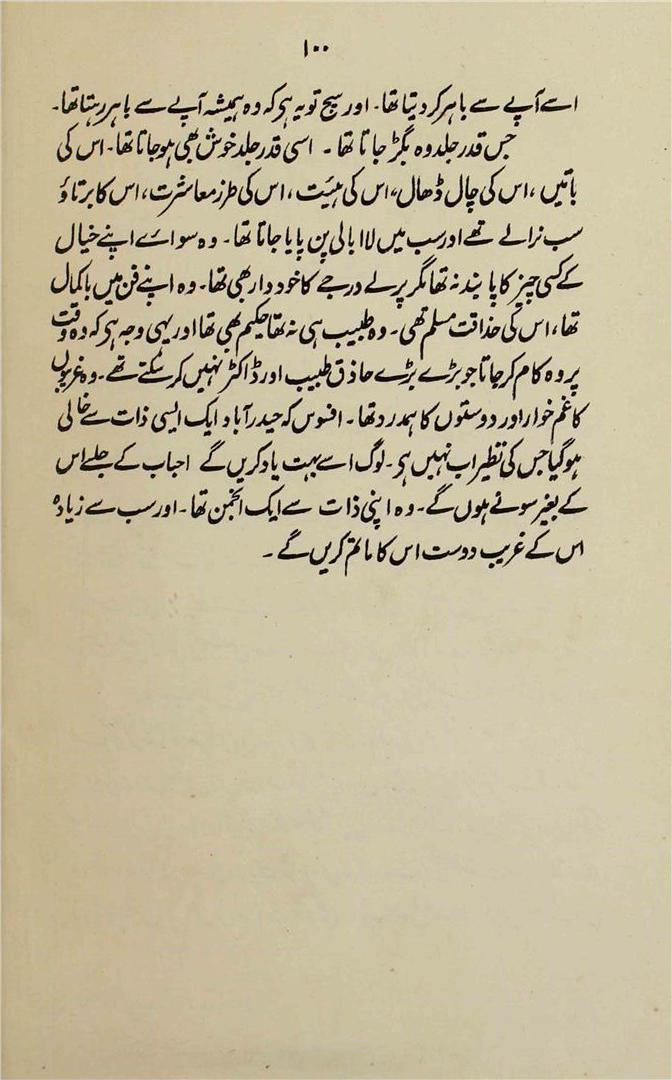 ۱۰۰
اسے آپے سے باہر کر دیتا تھا۔ اور سچ تو یہ ہی کہ وہ ہمیشہ آپے سے باہر رہتا تھا۔
جس قدر جلد وہ بگڑ جاتا تھا ۔ اسی قدر جلد خوش بھی ہو جاتا تھا۔ اس کی
باتیں ، اس کی چال ڈھال، اس کی ہیئت ، اس کی طرز معاشرت، اس کا برتاؤ
سب نرالے تھے اور سب میں لا ابالی پن پایا جاتا تھا۔ وہ سوائے اپنے خیال
کے کسی چیز کا پابند نہ تھا مگر پرلے درجے کا خوددار بھی تھا۔ وہ اپنے فن میں باکمال
تھا، اس کی حذاقت مسلم تھی۔ وہ طبیب ہی نہ تھا حکیم بھی تھا اور یہی وجہ ہی کہ وہ وقت
پر وہ کام کر جاتا جو بڑے بڑے حاذق طبیب اور ڈاکٹر نہیں کر سکتے تھے۔ وہ غریبوں
کا غم خوار اور دوستوں کا ہمدرد تھا۔ افسوس کہ حیدرآباد ایک ایسی ذات سے خالی
ہو گیا جس کی نظیر اب نہیں ہی۔ لوگ اسے بہت یاد کریں گے احباب کے جلسے اس
کے بغیر سونے ہوں گے۔ وہ اپنی ذات سے ایک انجمن تھا۔ اور سب سے زیادہ
اس کے غریب دوست اس کا ماتم کریں گے ۔